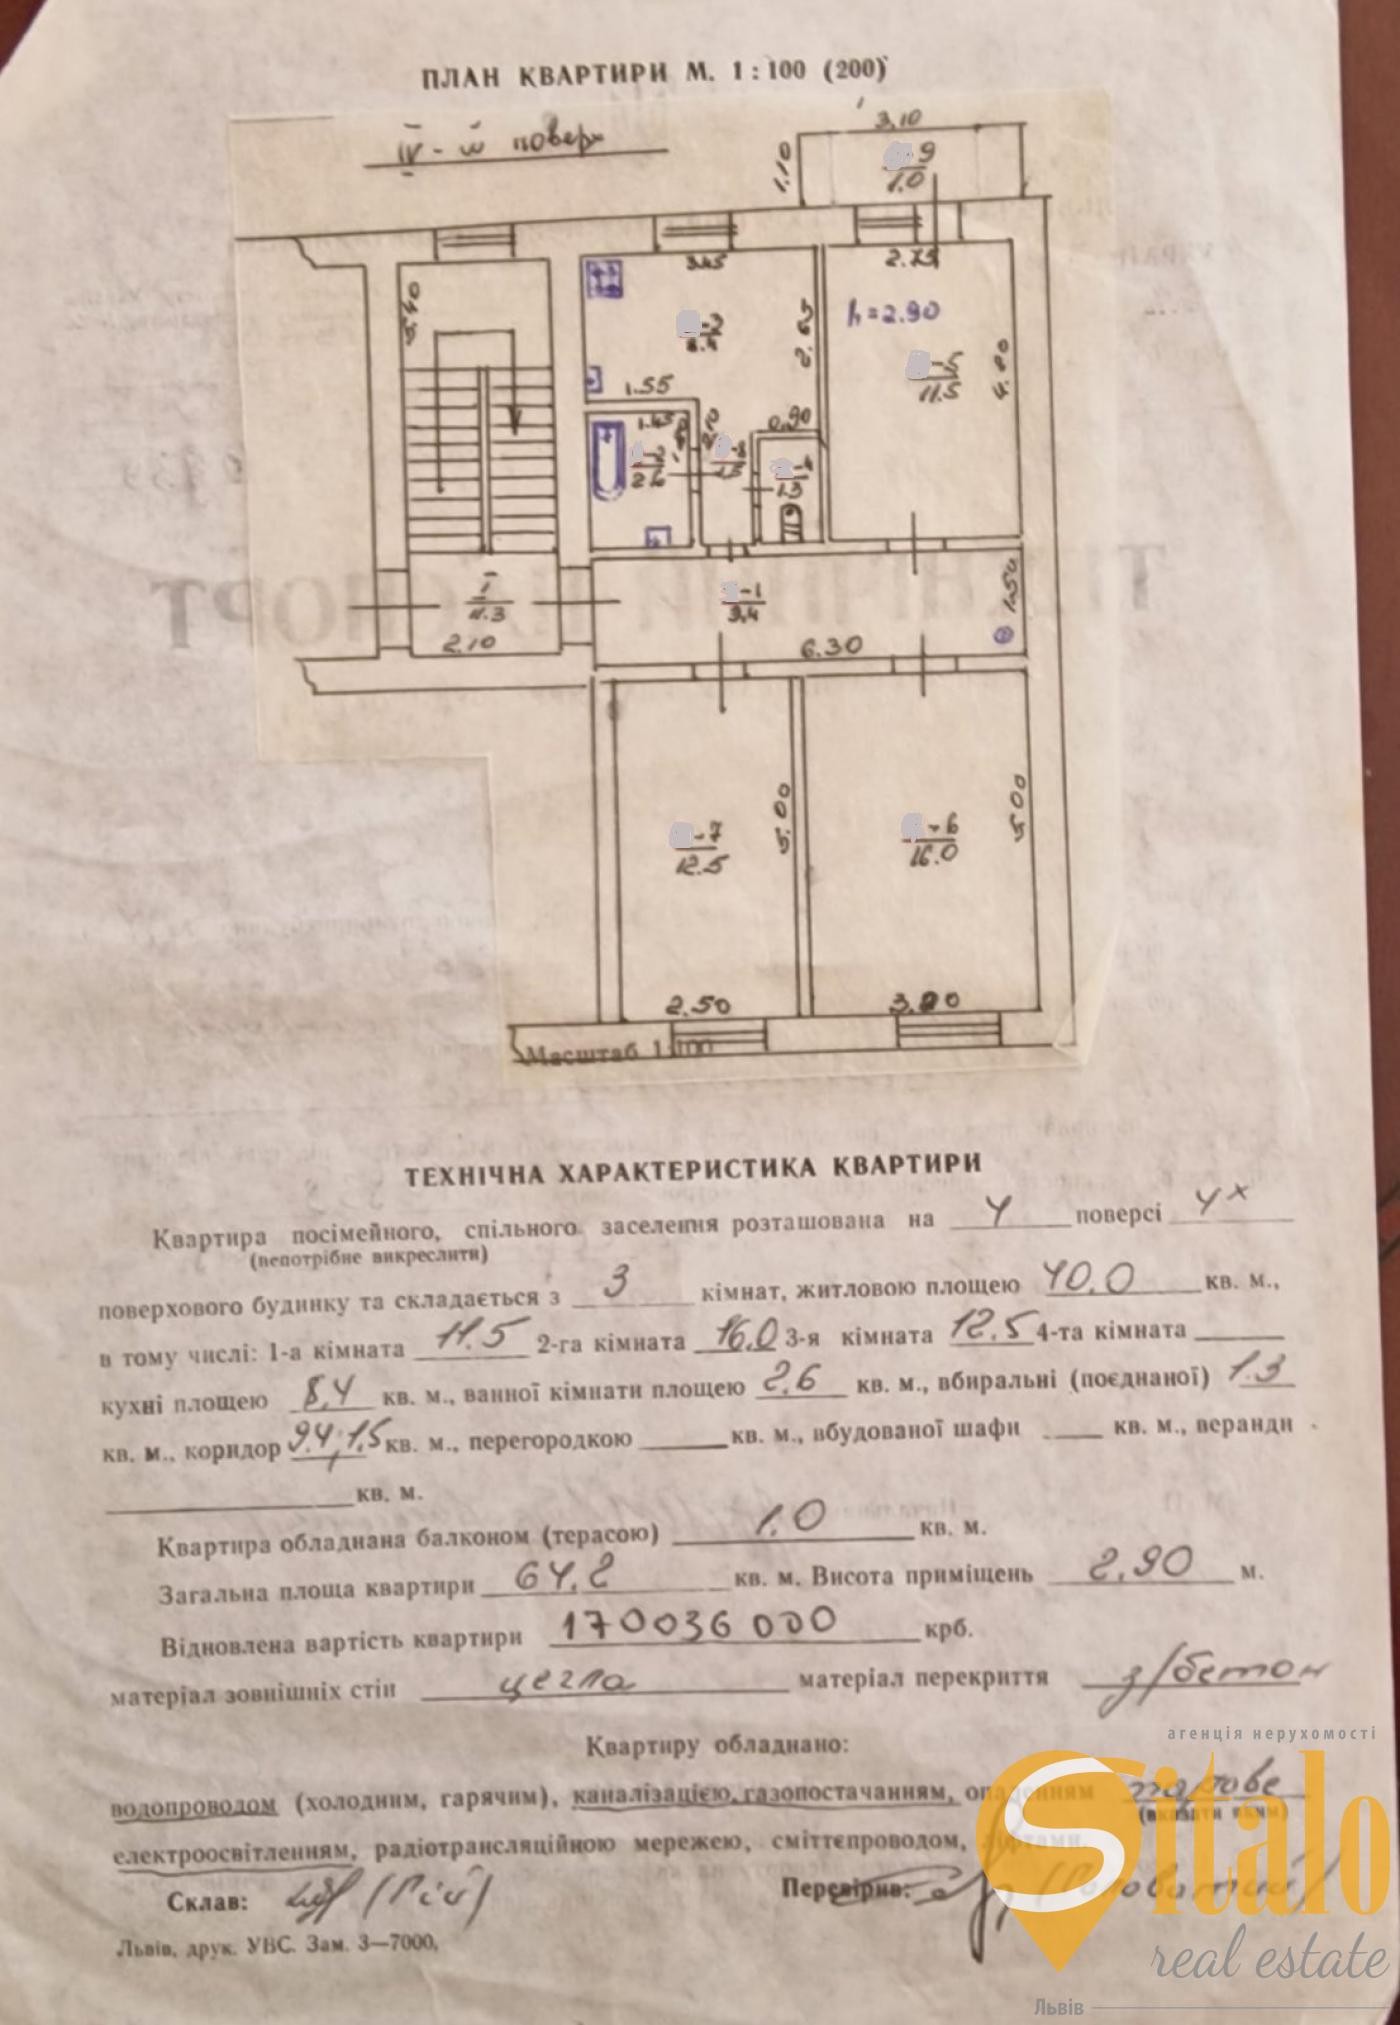 ПЛАН КВАРТИРИ М. 1 : 100 (200)
IV - й поверх
3,10
1.10
9
1.0
3.45
2.75
5.40
h = 2.90
2.65
-5
11.5
4.20
1.55
1.45
0,90
2.6
1.5
-4
1.3
I
11.3
-1
9,4
1.50
2.10
6.30
5.00
5.00
-7
12.5
-6
16.0
2.50
3.20
Масштаб 1:100
ТЕХНІЧНА ХАРАКТЕРИСТИКА КВАРТИРИ
Квартира посімейного, спільного заселення розташована на 4 поверсі 4х
(непотрібне викреслити)
поверхового будинку та складається з 3 кімнат, житловою площею 40.0 кв. м.,
в тому числі: 1-а кімната 11.5 2-га кімната 16.0 3-я кімната 12.5 4-та кімната
кухні площею 8,4 кв. м., ванної кімнати площею 2.6 кв. м., вбиральні (поєднаної) 1.3
кв. м., коридор 9.4, 1,5 кв. м., перегородкою кв. м., вбудованої шафи кв. м., веранди
кв. м.
Квартира обладнана балконом (терасою) 1.0 кв. м.
Загальна площа квартири 64,2 кв. м. Висота приміщень 2.90 м.
Відновлена вартість квартири 170036 000 крб.
матеріал зовнішніх стін цегла матеріал перекриття з/бетон
Квартиру обладнано:
водопроводом (холодним, гарячим), каналізацією, газопостачанням, опаленням
(вказати яким)
електроосвітленням, радіотрансляційною мережею, сміттєпроводом, ліфтами.
Склав: Перевірив:
Львів, друк. УВС. Зам. 3—7000,
агенція нерухомості
Sitalo
real estate
Львів